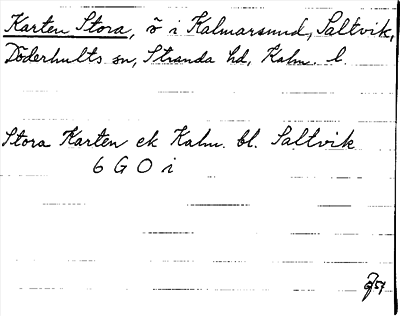 Karten Stora, ö i Kalmarsund, Saltvik,
Döderhults sn, Stranda hd, Kalm. l.
Stora Karten ek Kalm. bl. Saltvik
6 G O i